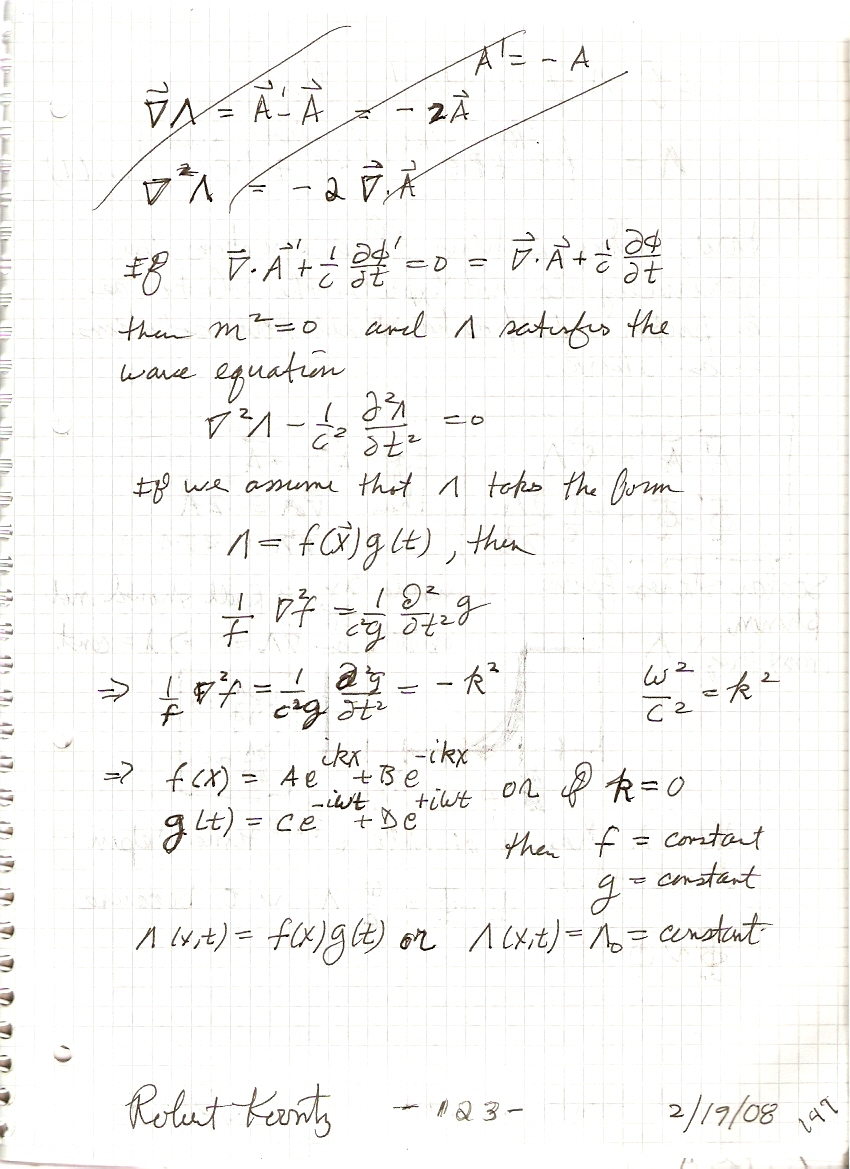 A' = - A
∇⃗Λ = A⃗' - A⃗ = - 2A⃗
∇²Λ = - 2 ∇⃗·A⃗
If ∇⃗·A⃗' + 1/c ∂ϕ'/∂t = 0 = ∇⃗·A⃗ + 1/c ∂ϕ/∂t
then m² = 0 and Λ satisfies the
wave equation
∇²Λ - 1/c² ∂²Λ/∂t² = 0
If we assume that Λ takes the form
Λ = f(x⃗)g(t), then
1/f ∇²f = 1/c²g ∂²/∂t² g
⇒ 1/f ∇²f = 1/c²g ∂²g/∂t² = - k² ω²/c² = k²
⇒ f(x) = Ae^{ikx} + Be^{-ikx} or if k = 0
g(t) = Ce^{-iωt} + De^{+iωt}
then f = constant
g = constant
Λ(x,t) = f(x)g(t) or Λ(x,t) = Λ₀ = constant
Robert Koontz - 123 - 2/19/08 147